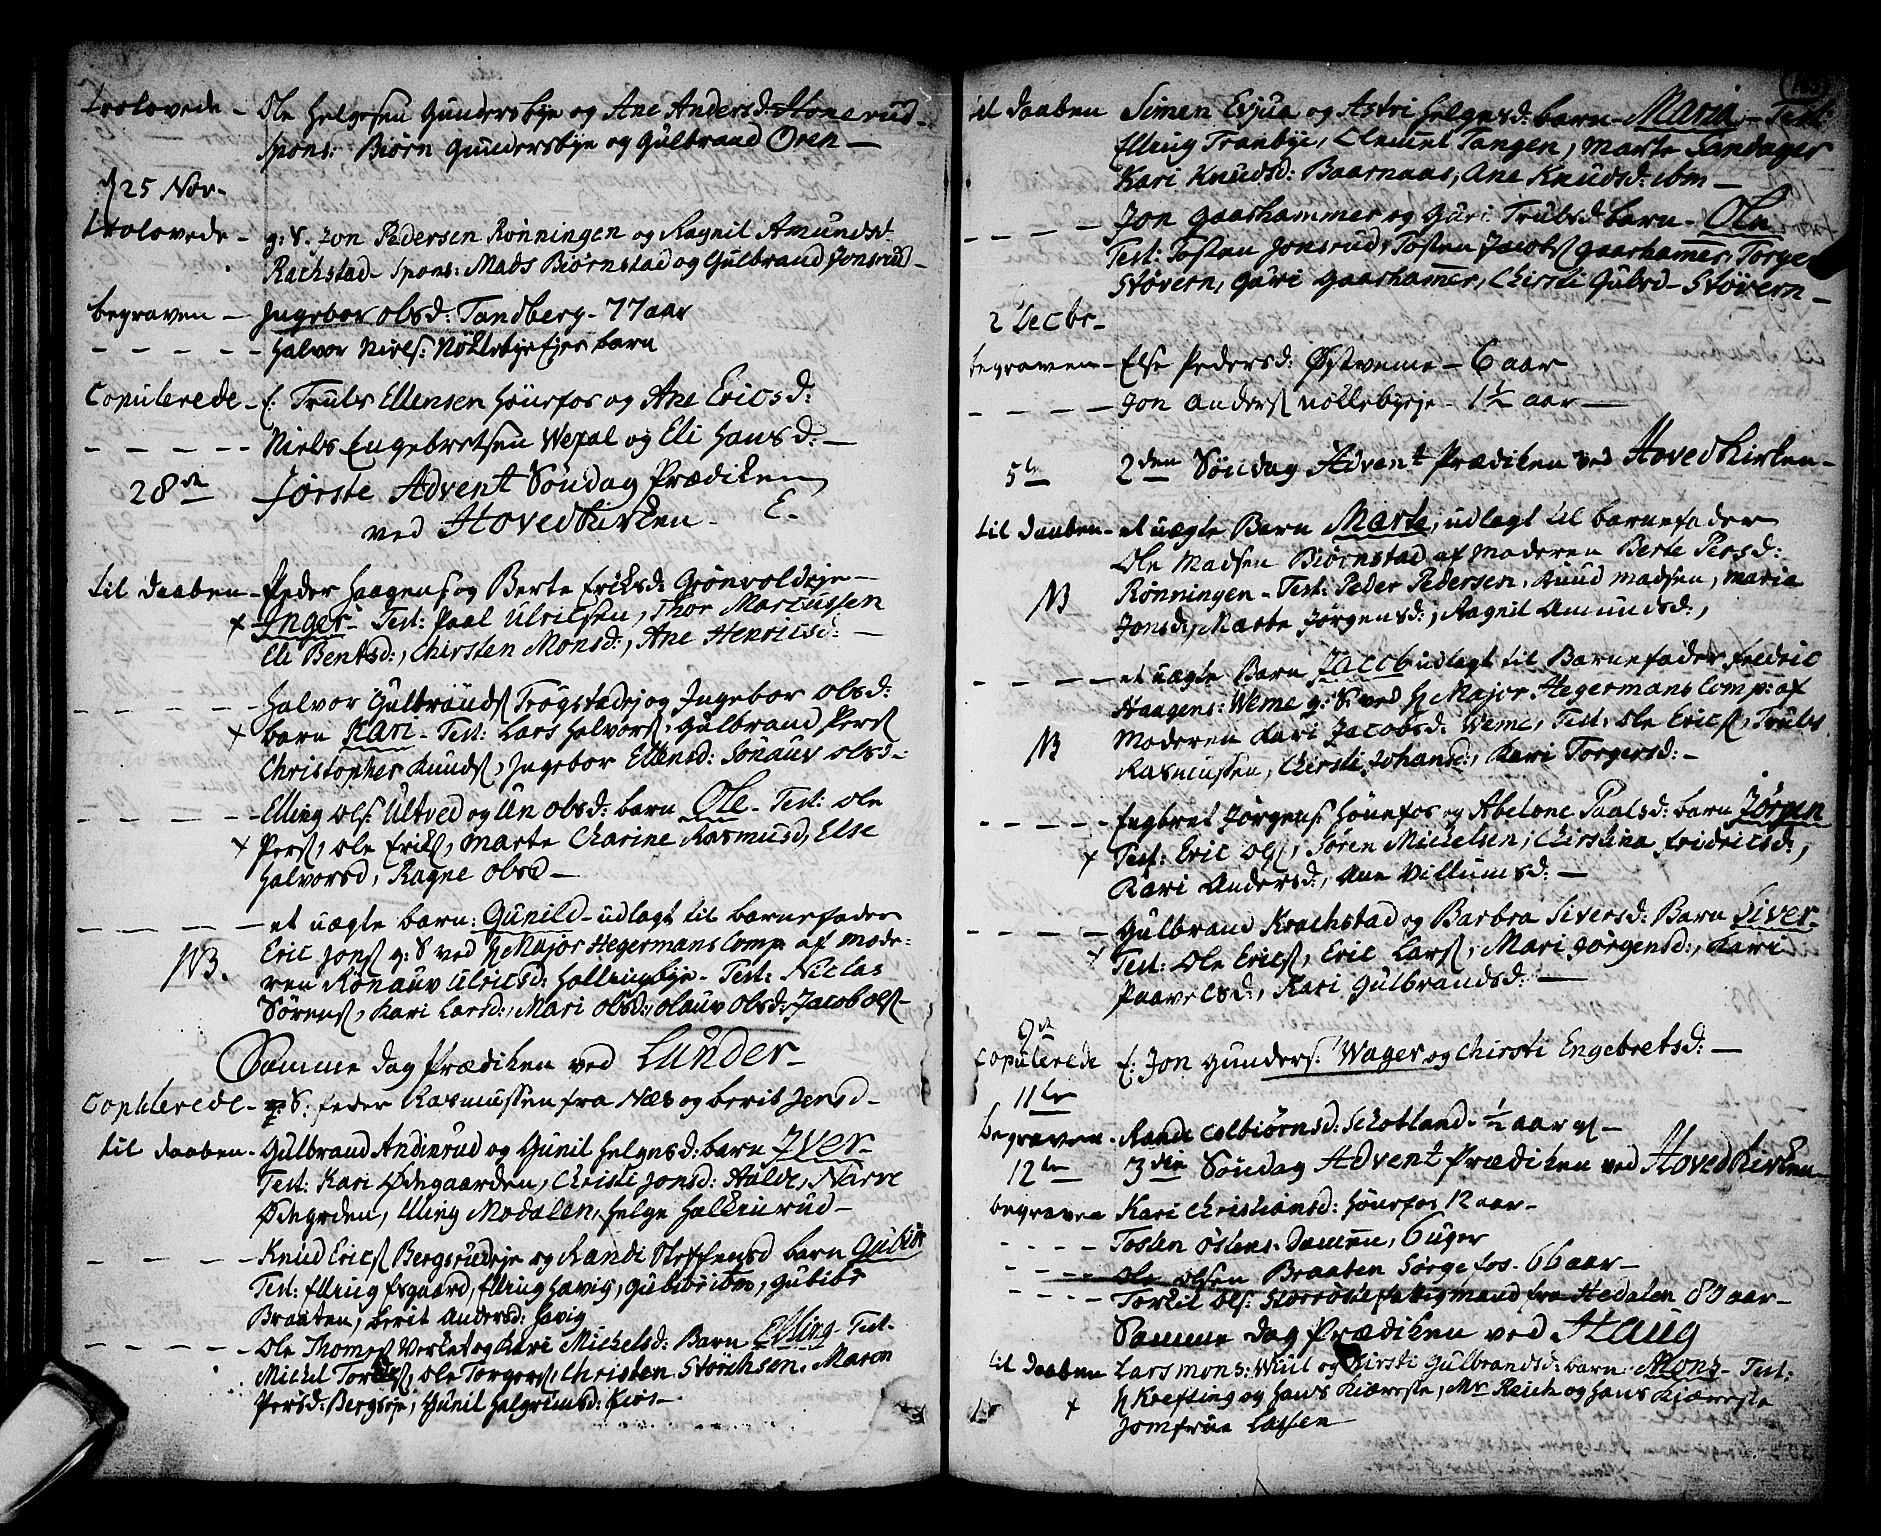 trolovede - Ole Helgesen Gundersbye og Ane Andersd: Honerud -
Spons: Biørn Gundersbye og Gulbrand Oren -
d 25 Nov -
trolovede - g: S. Jon Pedersen Rønningen og Ragnil Amundsd
Rachstad - Spons: Mads Biørnstad og Gulbrand Jonsrud -
begraven - Ingebor Olsd: Tandberg - 77 aar
- - - - - Halvor Niels: Nöklebye Ejes barn
Copulerede - f: Truls Ellensen Hönefos og Ane Ericsd:
- - - - - Niels Engebretsen Wexal og Eli Hansd: -
28de Første Advent Søndag Prædiken
ved Hovedkirken - E.
til daaben - Peder Haagens og Berte Eriksd: Grönvoldeje -
x Inger - Test: Paal Ulricsen, Thor Marcussen
Eli Bentsd:, Chirsten Monsd:, Ane Henricsd: -
- - - - - Halvor Gulbrands Trögstadej og Ingebor Olsd:
x barn Kari - Test: Lars Halvors, Gulbrand Pers
Christopher Knuds, Ingebor Ellensd: Sönauv Olsd -
- - - - - Elling Ols: Ultved og Un Olsd: barn Ole - Test: Ole
x Pers, Ole Eriks, Marte Charine Rasmusd, Else
Halvorsd, Ragne Olsd -
- - - - - et uægte barn: Gunild - udlagt til barnefader
NB. Eric Jons g: S ved H Major Hegermans Comp af mode-
ren Rönauv Ulricsd: Hallingbye - Test: Niclas
Sörens, Kari Larsd:, Mari Olsd:, Olauv Olsd: Jacob Ols -
Samme dag Prædiken ved Lunder -
Copulerede - g: S: Peder Rasmussen fra Næs og Berit Jensd -
til daaben - Gulbrand Andierud og Gunil Helgesd: barn Iver -
Test: Kari Ødegaarden, Christi Jonsd: Halde, Narve
Ødegrden, Elling Modalen, Helge Hallinrud -
- - - - Knud Erics Bergsrudeje og Randi Steffensd barn
Test: Elling Esgaard, Elling Havig, Gulbiör ibm, Gubiör
Braaten, Berit Andersd: Havig
- - - - - Ole Thomes og Kari Michelsd: Barn Elling - Test.
Michel, Ole Torgers, Christen Störchsen, Maren
Persd: Bergseje, Gunil Halgrimsd:
til daaben Simen Evjua og Astri Helgesd: barn - Maria - Test:
Elling Tranbye, Clemet Tangen, Marte Sandager
Kari Knudsd: Baarnaas, Ane Knudsd: ibm -
- - - - Jon Gaashammer og Guri Trulsd barn - Ole
Test: Tosten Jonsrud, Tosten Jacobs Gaashamer, Torger
Støvern, Guri Gaashamer, Chirsti Gulsd - Støvern -
2 Decbr -
begraven - Else Pedersd: Østweme - 6 aar
- - - - Jon Anders Nöllebyeje - 1½ aar -
5te 2den Söndag Advent Prædiken ved Hovedkirken -
til daaben - et uægte Barn Marte, udlagt til barnefader
Ole Madsen Biørnstad af Moderen Berte Persd:
NB Rönningen - Test: Peder Pedersen, Knud Madsen, Maria
Jonsd, Marte Jörgensd:, Ragnil Amundsd:,
- - - - et uægte Barn Jacob udlagt til Barnefader Fredric
Haagens: Weme g: S: ved H Major Hegermans Comp: af
NB Moderen Kari Jacobsd: Weme, Test: Ole Erics, Truls
Rasmussen, Chirsti Johansd:, Kari Torgersd: -
- - - - Engbret Jørgens Hönefos og Abelone Paalsd: barn Jörgen
x Test: Eric Ols, Sören Michelsen, Chirstina Fridricsd:,
Kari Andersd:, Ane Villumsd: -
- - - - Gulbrand Krachstad og Barbra Siversd: Barn Siver -
x Test: Ole Erics, Eric Lars, Mari Jörgensd:, Kari
Paavelsd:, Kari Gulbrandsd: -
9de
Copulerede f: Jon Gunders: Wager og Chirsti Engebretsd: -
11te
begraven - Randi Colbiørnsd: Schotland - ½ aar -
12te 3die Søndag Advent Prædiken ved Hovedkirken -
begraven Kari Christiansd: Hönefos 12 aar -
- - - - Tosten Ostens Damen, 6 uger
- - - - Ole Olsen Braaten Sørgefos - 66 aar -
- - - - Torkil Ols: fattigmand fra Hedalen 80 aar -
Samme dag Prædiken ved Haug
til daaben Lars Mons: Wiul og Kirsti Gulbrandsd: barn - Mons - Test:
x H Krefting og Hans Kiæreste, Mr Reich og Hans Kiæreste
Jomfrue Lassen